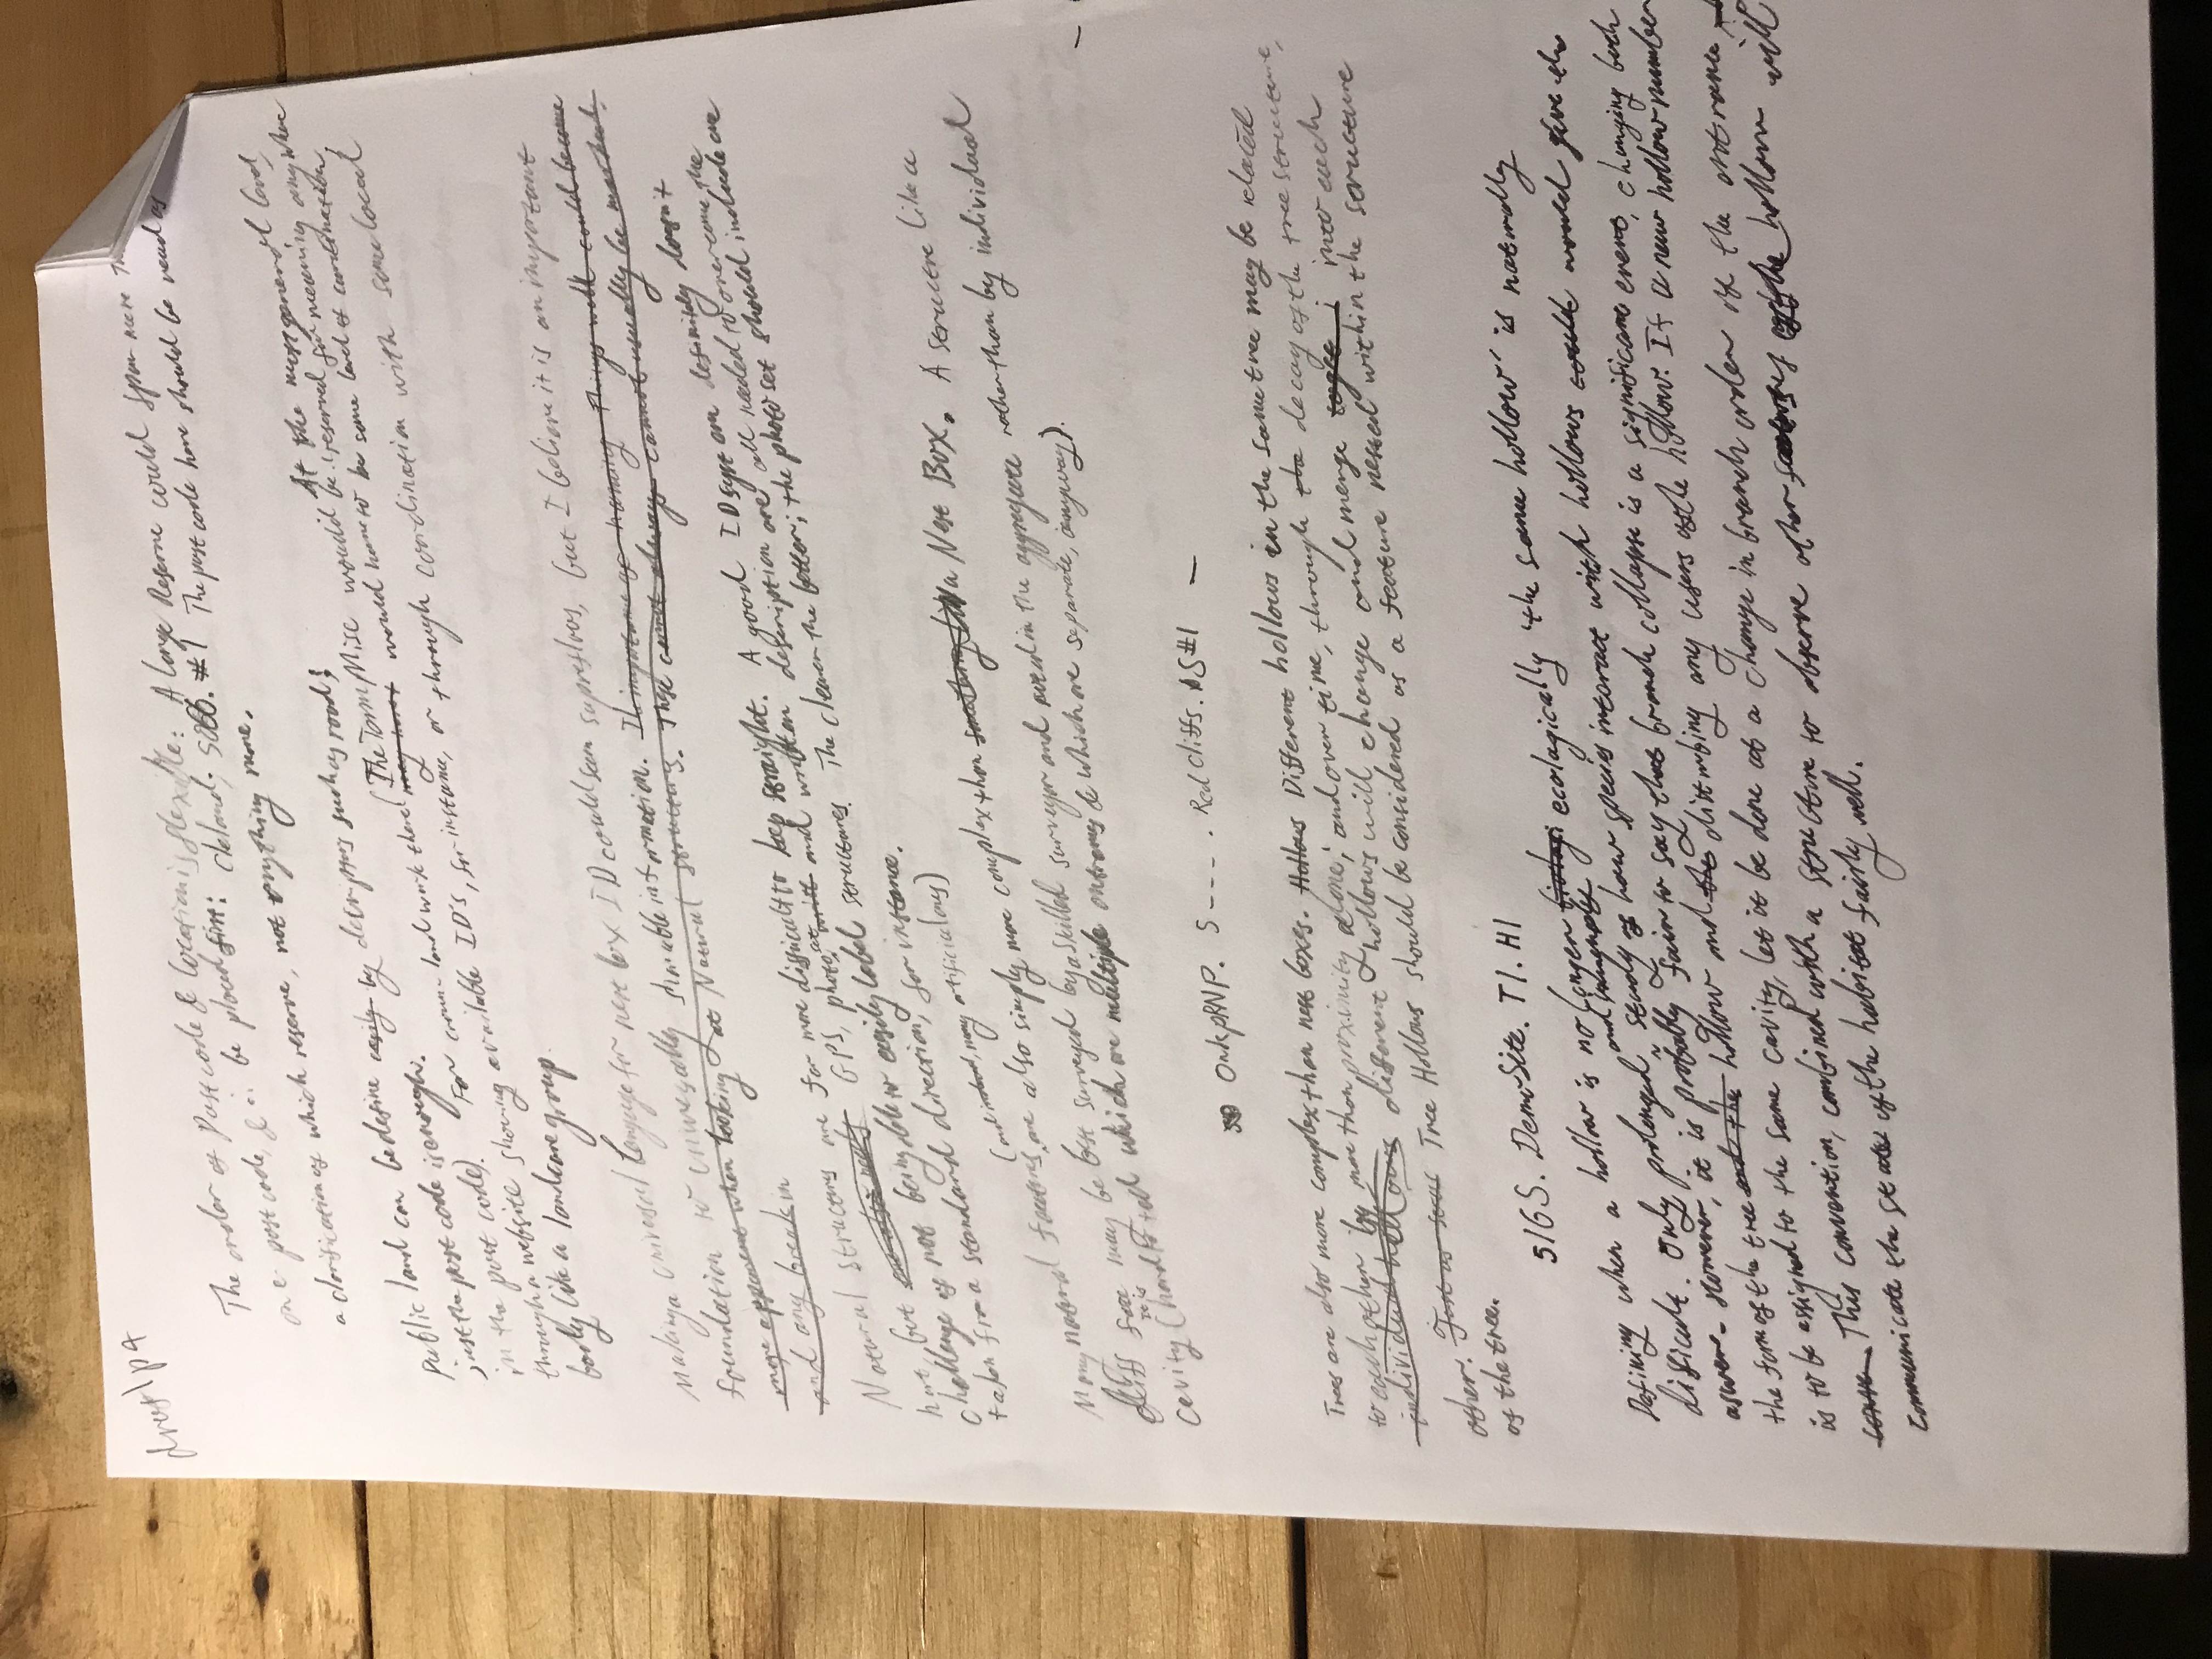 draft p4
The order of Postcode & location is flexible: A large Reserve could span more
one post code, & be placed first: Cleland; 5066. #1 The post code here should be read as
a clarification of which reserve, not anything more.
Public land can be define easily by descriptors such as road; At the most general level,
just the post code is enough. (The Term Misc would be reserved for meaning anywhere
in the post code). For crown land work there may have would have to be some level of coordination,
through a website showing available ID's, for instance, or through coordination with some local
body like a landcare group.
Making a Universal Language for nest box ID could seem supreflous, but I believe it is an important
foundation to universally sharable information. The importance of naming Things well could become
more apparent when looking at Natural structures. These cannot always cannot usually be marked.
and any break in
Natural structures are far more difficult to keep straight. A good ID system definitely doesn't
hurt, but GPS, photo set writt and written description are all needed to overcome the
challenge of not being able to easily label structures. The clearer the better; the photo set should include one
taken from a standard direction, for instance.
(and indeed, many artificial ones)
Many natural features are also simply more complex than something like a Nest Box. A structre like a
cliff face may be best surveyed by a skilled surveyor and in the aggregate rather than by individual
cavity (it is hard to tell which are multiple entrances & which are separate, anyway).
OnkpRNP. 5---. Red Cliffs. S#1 —
Trees are also more complex than nest boxes. Hollows Different hollows in the same tree may be related
to each other by more than proximity alone; and over time, through the decay of the tree structure,
individual hollows different hollows will change and merge into each
other. Just as Tree Hollows should be considered as a feature nested within the structure
of the tree.
51GS. Demo Site. T1. H1
Defining when a hollow is no longer biologi ecologically 'the same hollow' is naturally
difficult. Only prolonged and study of how species interact with hollows could would give the
aswer. However, it is probably fair to say that branch collapse is a significant event, changing both
the form of the tree and the hollow and the disturbing any users of the hollow. If a new hollow number
is to be assigned to the same cavity, let it be done at a change in branch order of the entrance
conve This convention, combined with a structure to observe other features of the hollow will
communicate the state of the habitat fairly well.